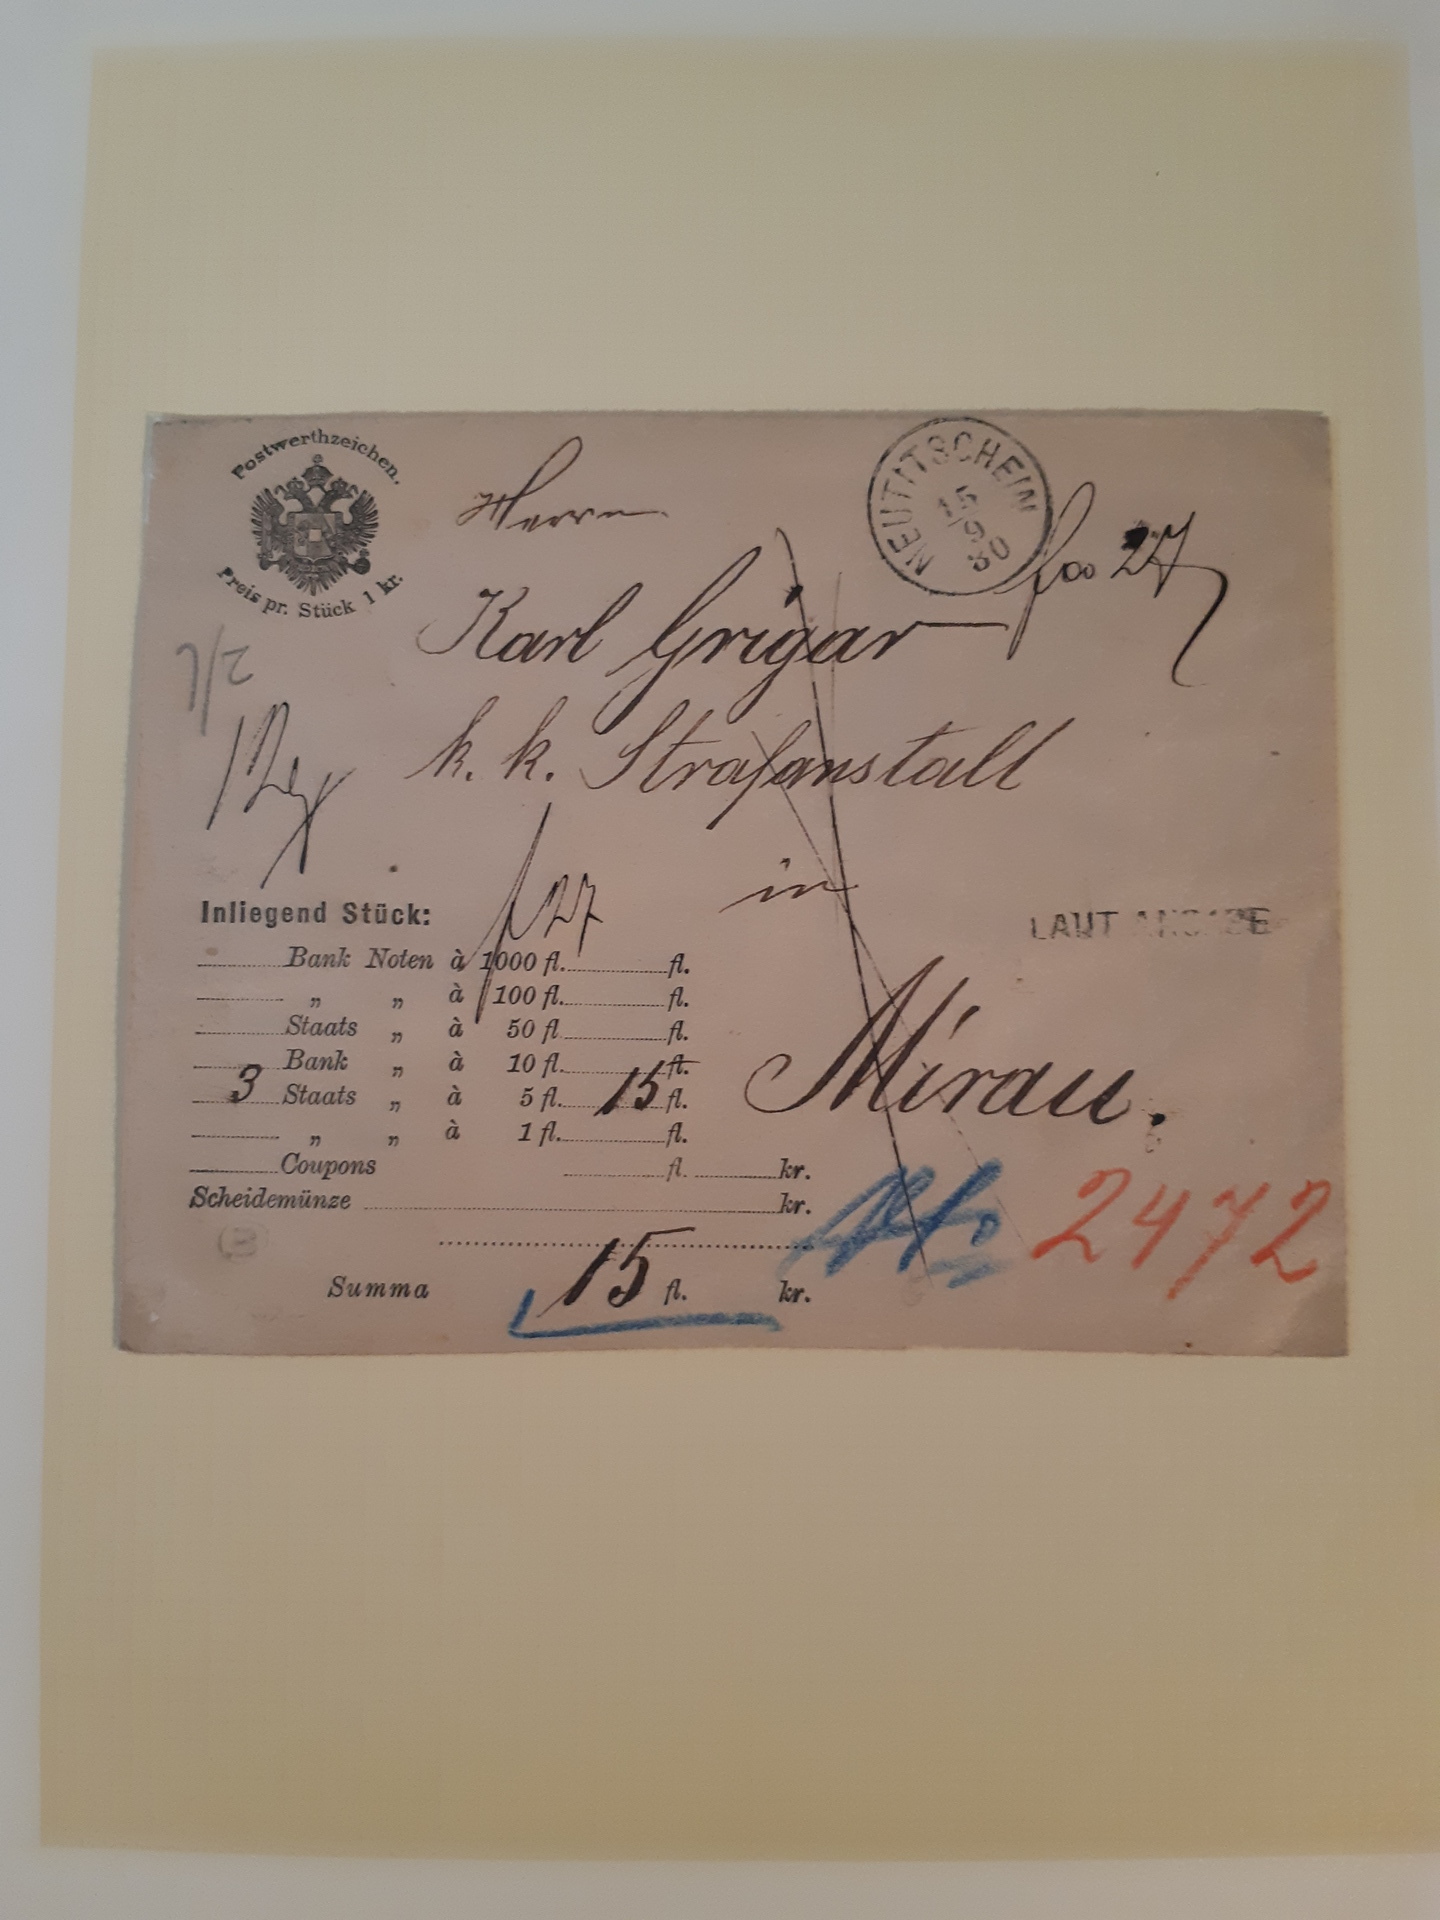 Postwerthzeichen.
Preis pr. Stück 1 kr.
NEUTITSCHEIN
15
9
80
Herrn
fco 27
Karl Grigar
k. k. Strafanstalt
in
Mirau.
LAUT ANGABE
27
Inliegend Stück:
Bank Noten à 1000 fl. fl.
„ „ à 100 fl. fl.
Staats „ à 50 fl. fl.
Bank „ à 10 fl. fl.
3 Staats „ à 5 fl. 15 fl.
„ „ à 1 fl. fl.
Coupons fl. kr.
Scheidemünze kr.
Summa 15 fl. kr.
2472